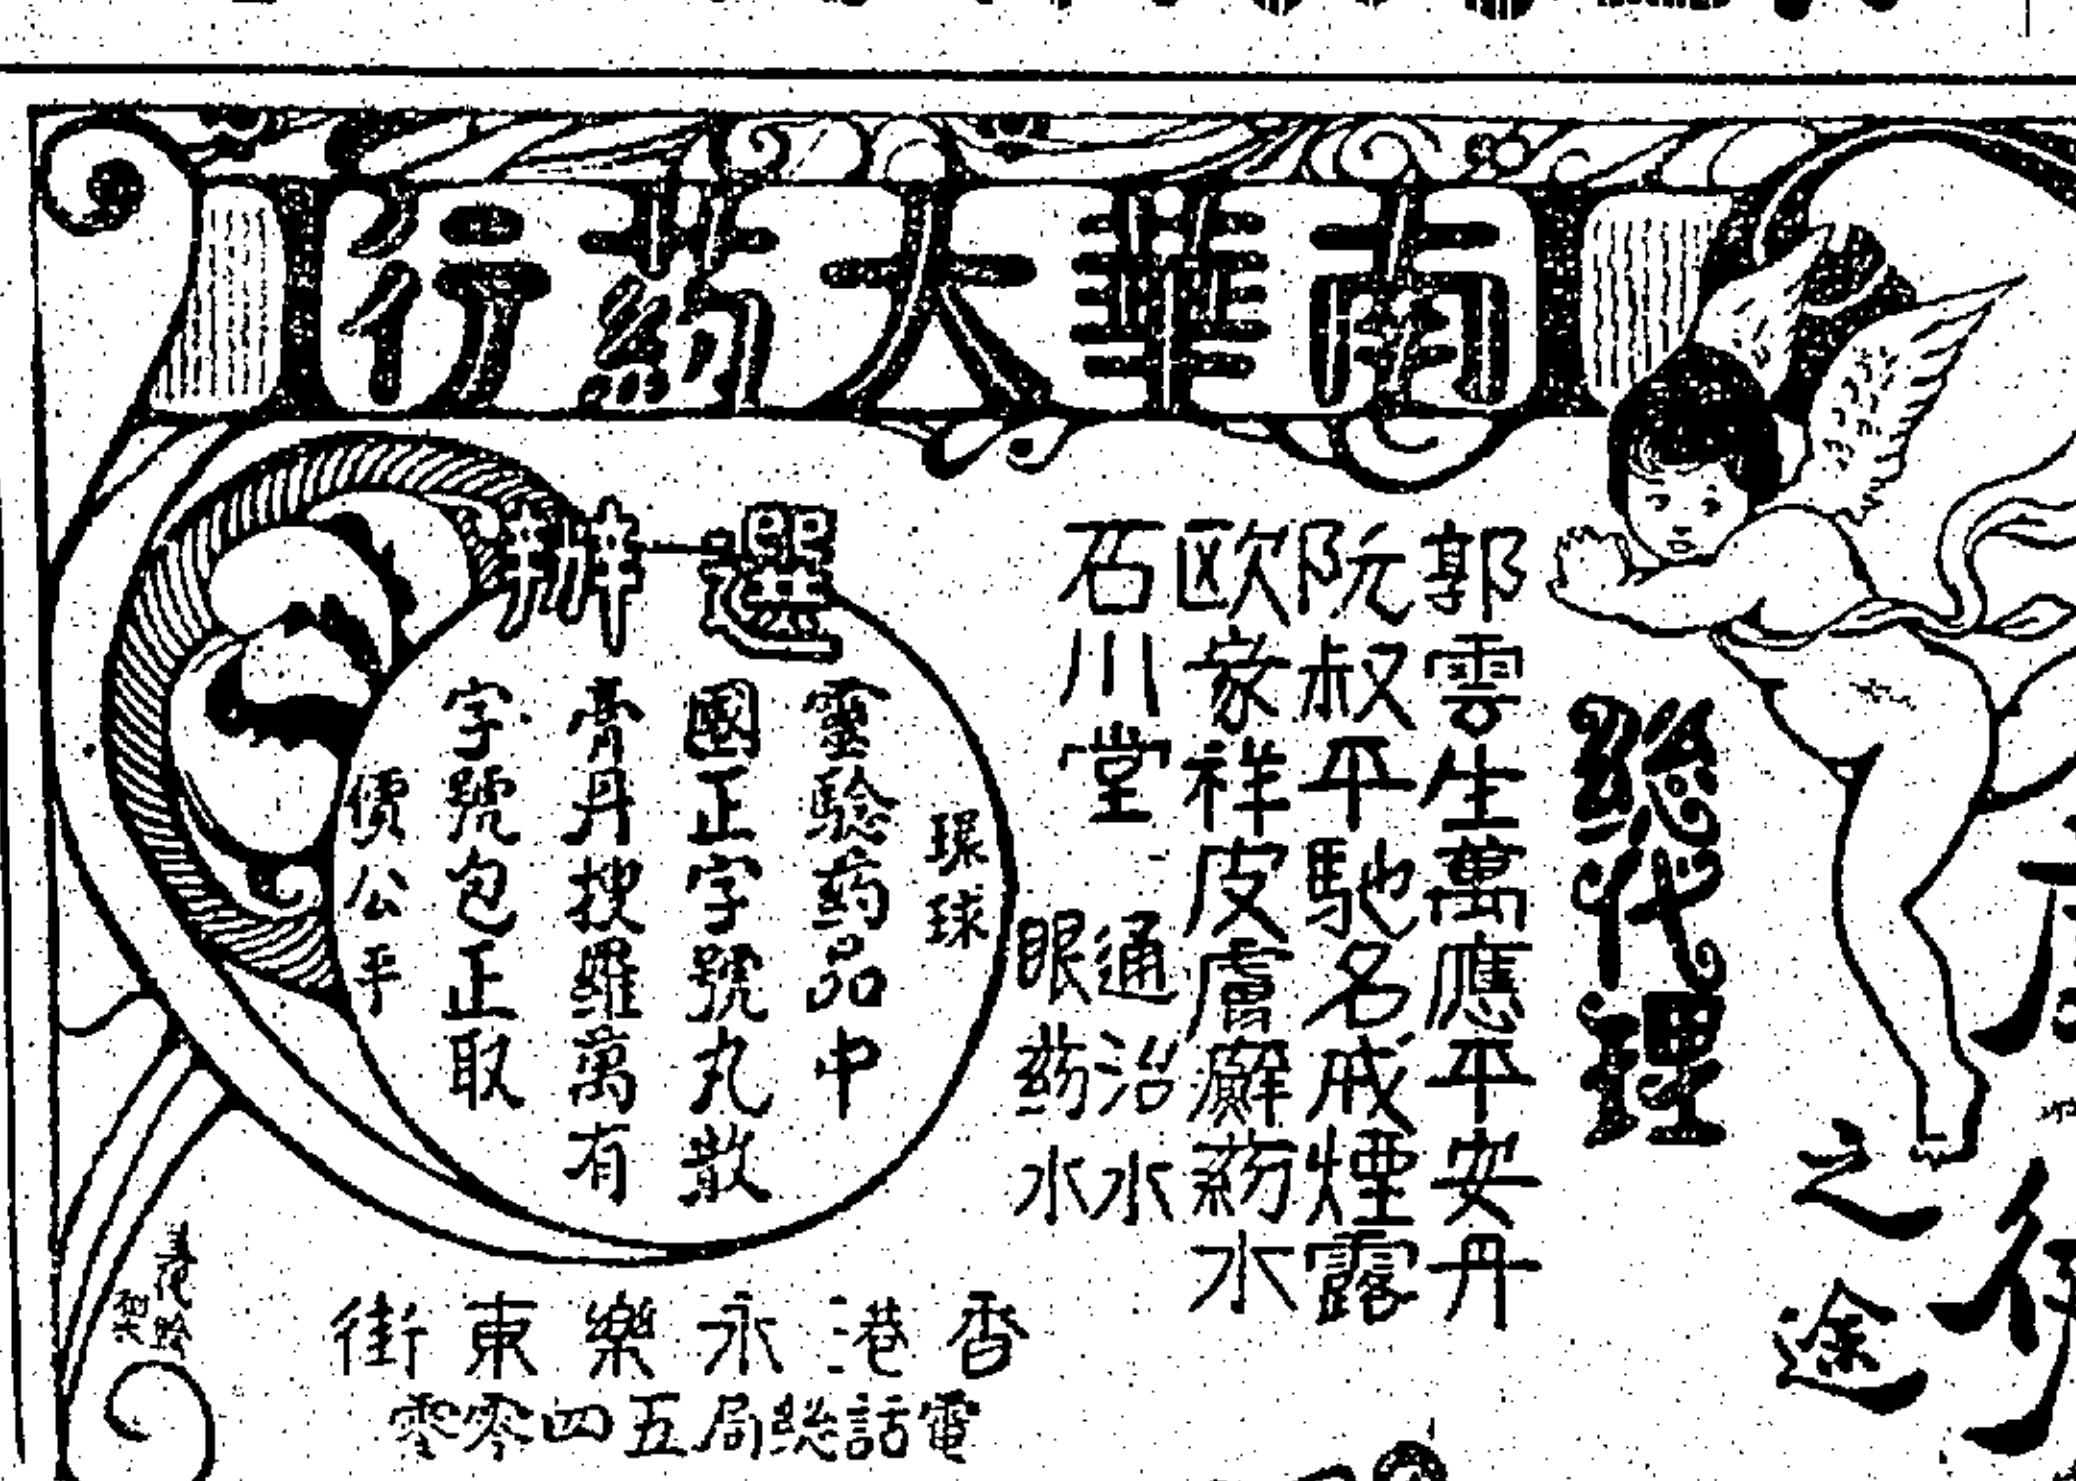 南華大葯行
總代理
郭雲生萬應平安丹
阮叔平馳名戒煙露
欧家祥皮膚癬葯水
石川堂
通治水
眼葯水
選辦
環球
靈驗葯品中
國正字號丸散
膏丹搜羅萬有
字號包正取
價公平
香港永樂東街
電話總局五四零零
之途